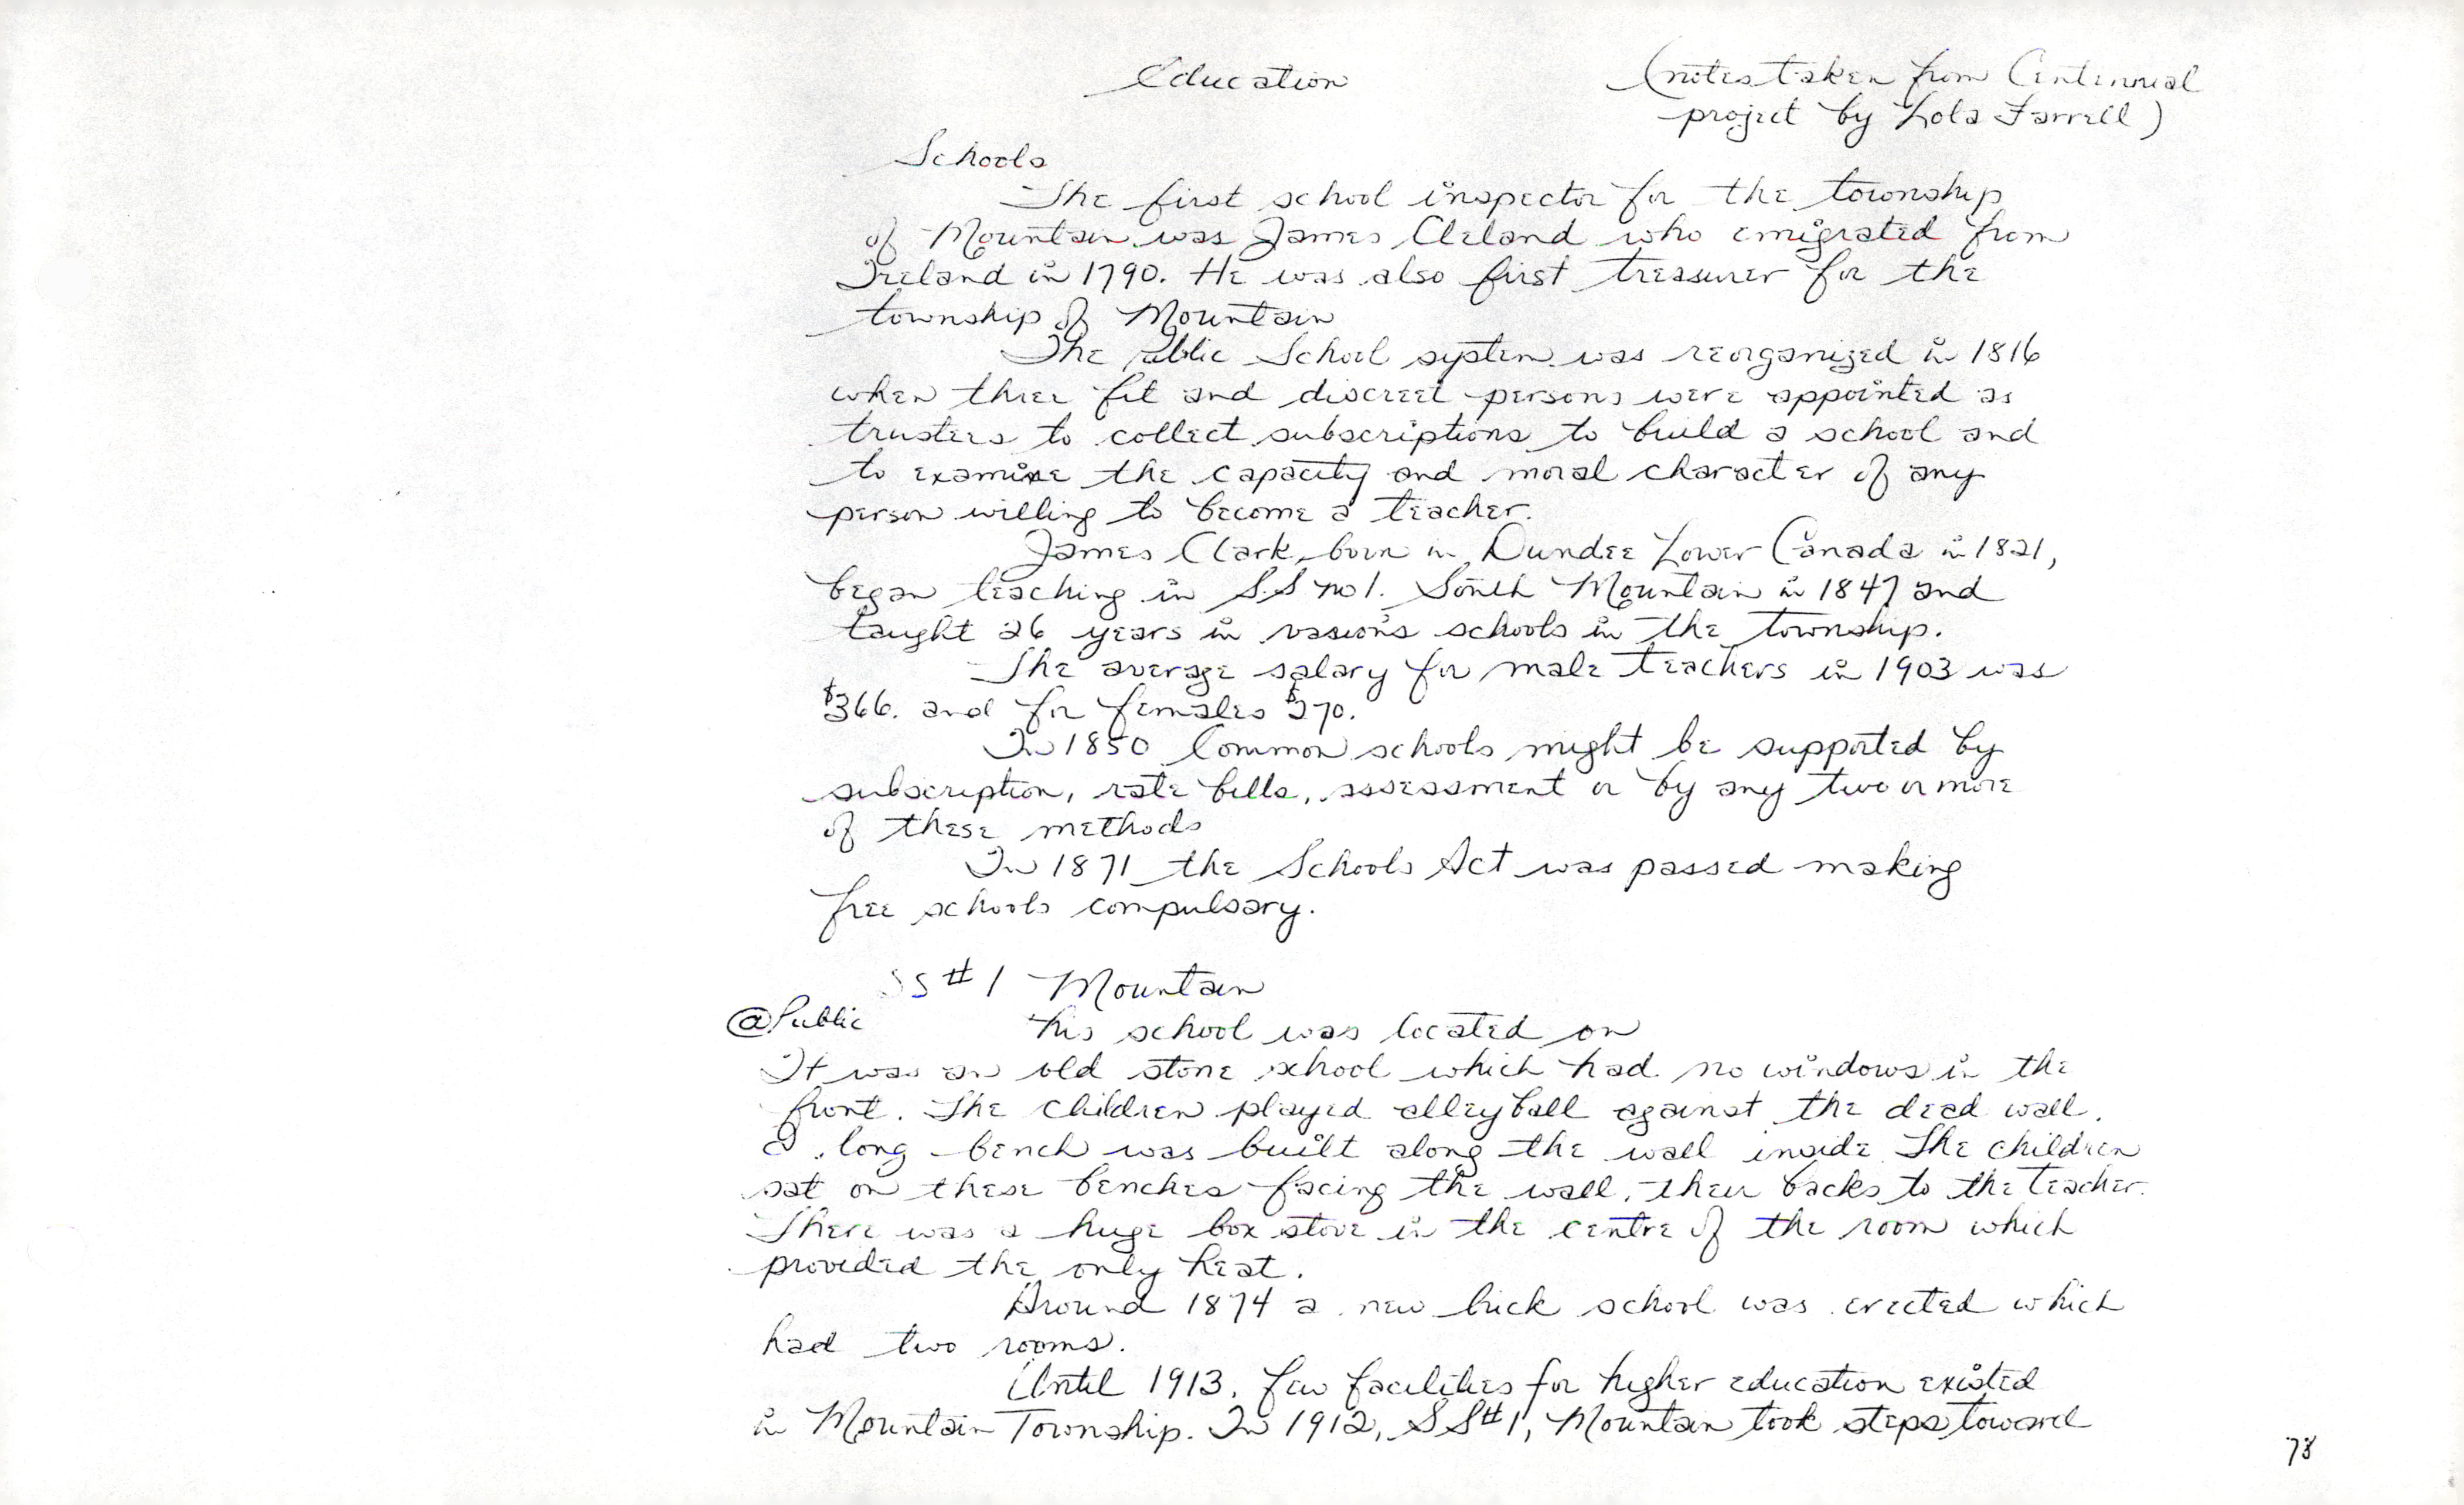 Education
(notes taken from Centennial
project by Lola Farrell)
Schools
The first school inspector for the township
of Mountain was James Cleland who emigrated from
Ireland in 1790. He was also first treasurer for the
township of Mountain
The Public School system was reorganized in 1816
when three fit and discreet persons were appointed as
trustees to collect subscriptions to build a school and
to examine the capacity and moral character of any
person willing to become a teacher.
James Clark, born in Dundee Lower Canada in 1821,
began teaching in S.S no 1. South Mountain in 1847 and
taught 26 years in various schools in the township.
The average salary for male teachers in 1903 was
$366. and for females $270.
In 1850 Common schools might be supported by
subscription, rate bills, assessment or by any two or more
of these methods
In 1871 the Schools Act was passed making
free schools compulsary.
SS # 1 Mountain
@Public
This school was located on
It was an old stone school which had no windows in the
front. The children played alleyball against the dead wall.
A long bench was built along the wall inside. The children
sat on these benches facing the wall, their backs to the teacher.
There was a huge box stove in the centre of the room which
provided the only heat.
Around 1874 a new brick school was erected which
had two rooms.
Until 1913, few facilities for higher education existed
in Mountain Township. In 1912, SS#1, Mountain took steps toward
78